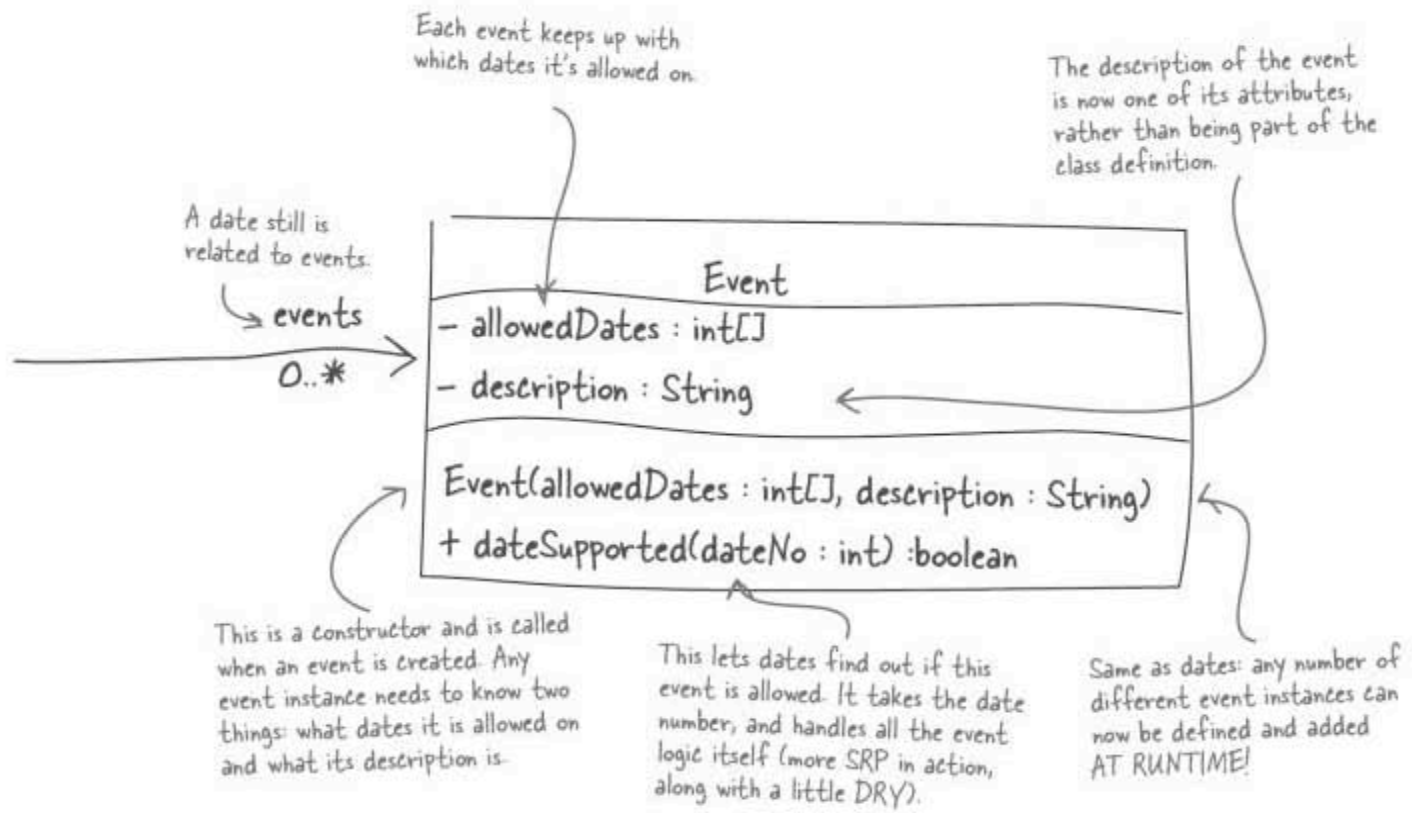 Each event keeps up with
which dates it's allowed on.
The description of the event
is now one of its attributes,
rather than being part of the
class definition.
A date still is
related to events.
events
0..*
Event
- allowedDates : int[]
- description : String
Event(allowedDates : int[], description : String)
+ dateSupported(dateNo : int) :boolean
This is a constructor and is called
when an event is created. Any
event instance needs to know two
things: what dates it is allowed on
and what its description is.
This lets dates find out if this
event is allowed. It takes the date
number, and handles all the event
logic itself (more SRP in action,
along with a little DRY).
Same as dates: any number of
different event instances can
now be defined and added
AT RUNTIME!